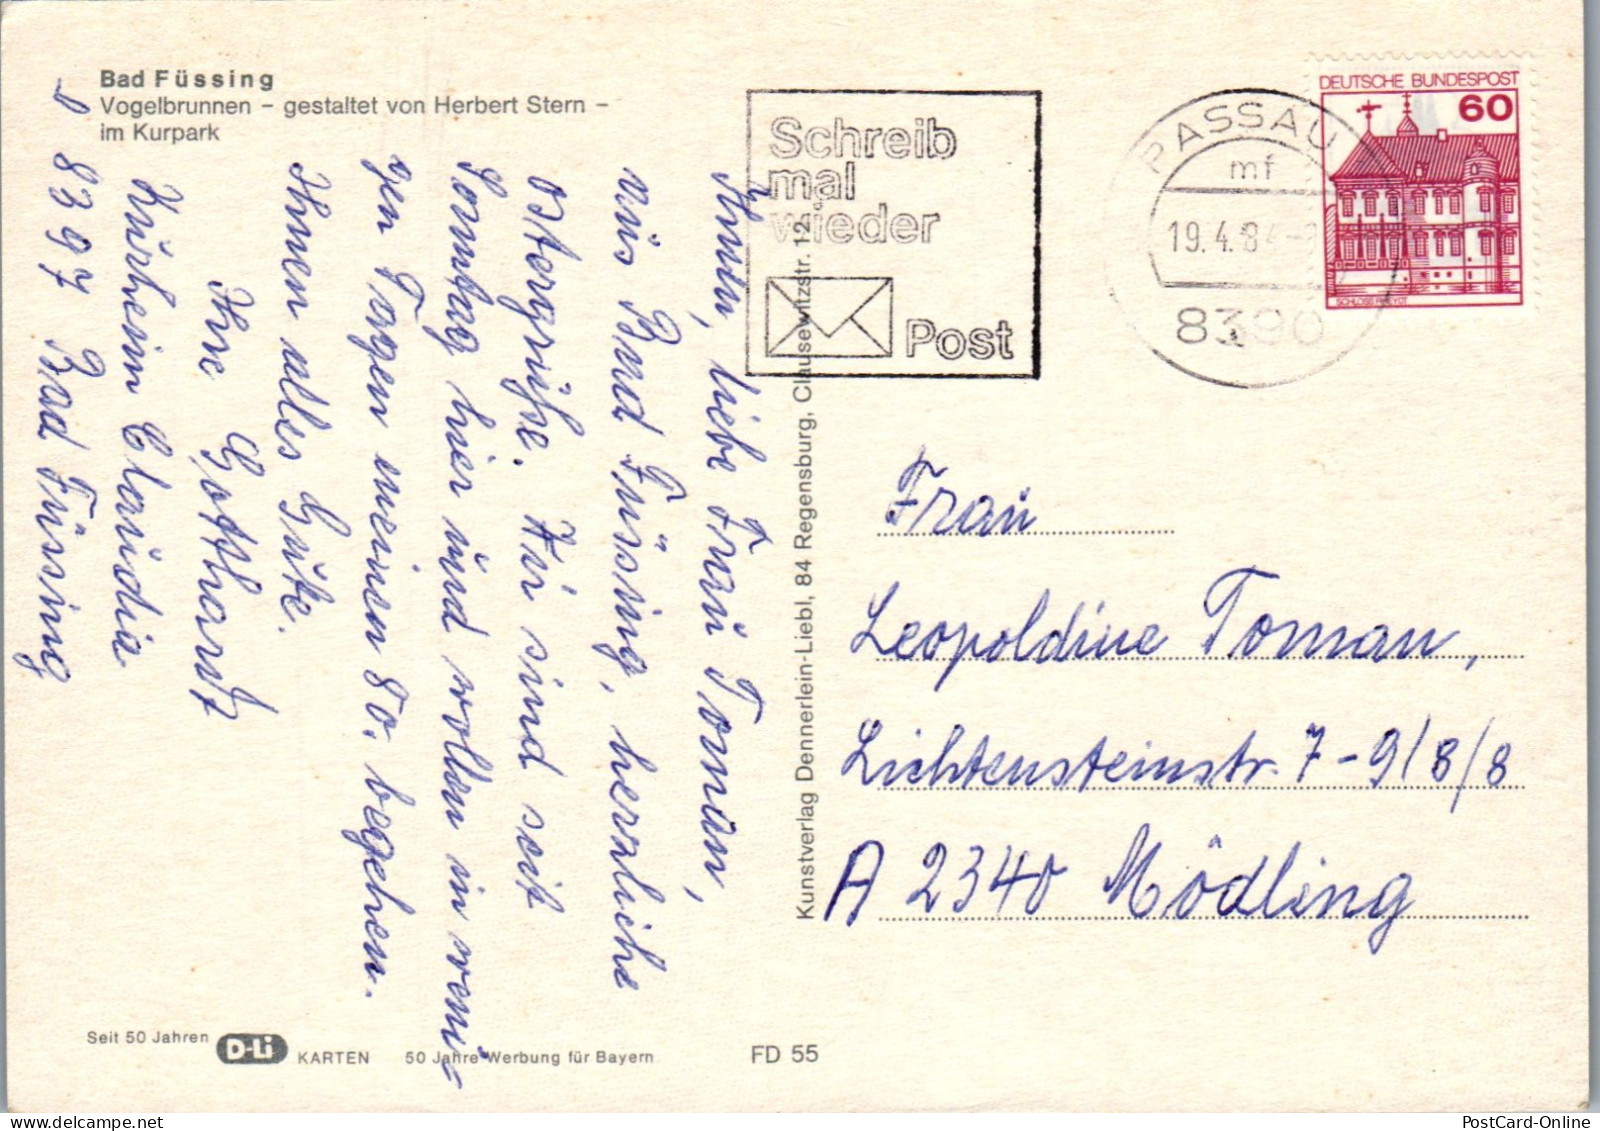 Bad Füssing
Vogelbrunnen – gestaltet von Herbert Stern –
im Kurpark
Schreib
mal
wieder
Post
PASSAU
mf
19.4.84
8390
DEUTSCHE BUNDESPOST
60
liebe Frau Toman,
aus Bad Füssing, herzliche
Ostergrüße. Wir sind seit
Sonntag hier und wollen in weni-
gen Tagen meinen 80. begehen.
Ihnen alles Gute.
Ihre Gotthard
Kurheim Claudia
D 8397 Bad Füssing
Kunstverlag Dennerlein-Liebl, 84 Regensburg, Clausewitzstr. 12
Frau
Leopoldine Toman,
Lichtensteinstr. 7-9/8/8
A 2340 Mödling
Seit 50 Jahren D-Li KARTEN 50 Jahre Werbung für Bayern FD 55
PostCard-Online